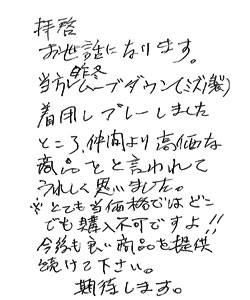 拝啓
お世話になります。
昨冬
当方ムーブダウン(ミズノ製)
着用しプレーしました
ところ、仲間より高価な
商品をと言われて
うれしく思いました。
※とても当価格ではどこ
でも購入不可ですよ!!
今後も良い商品を提供
続けて下さい。
期待します。